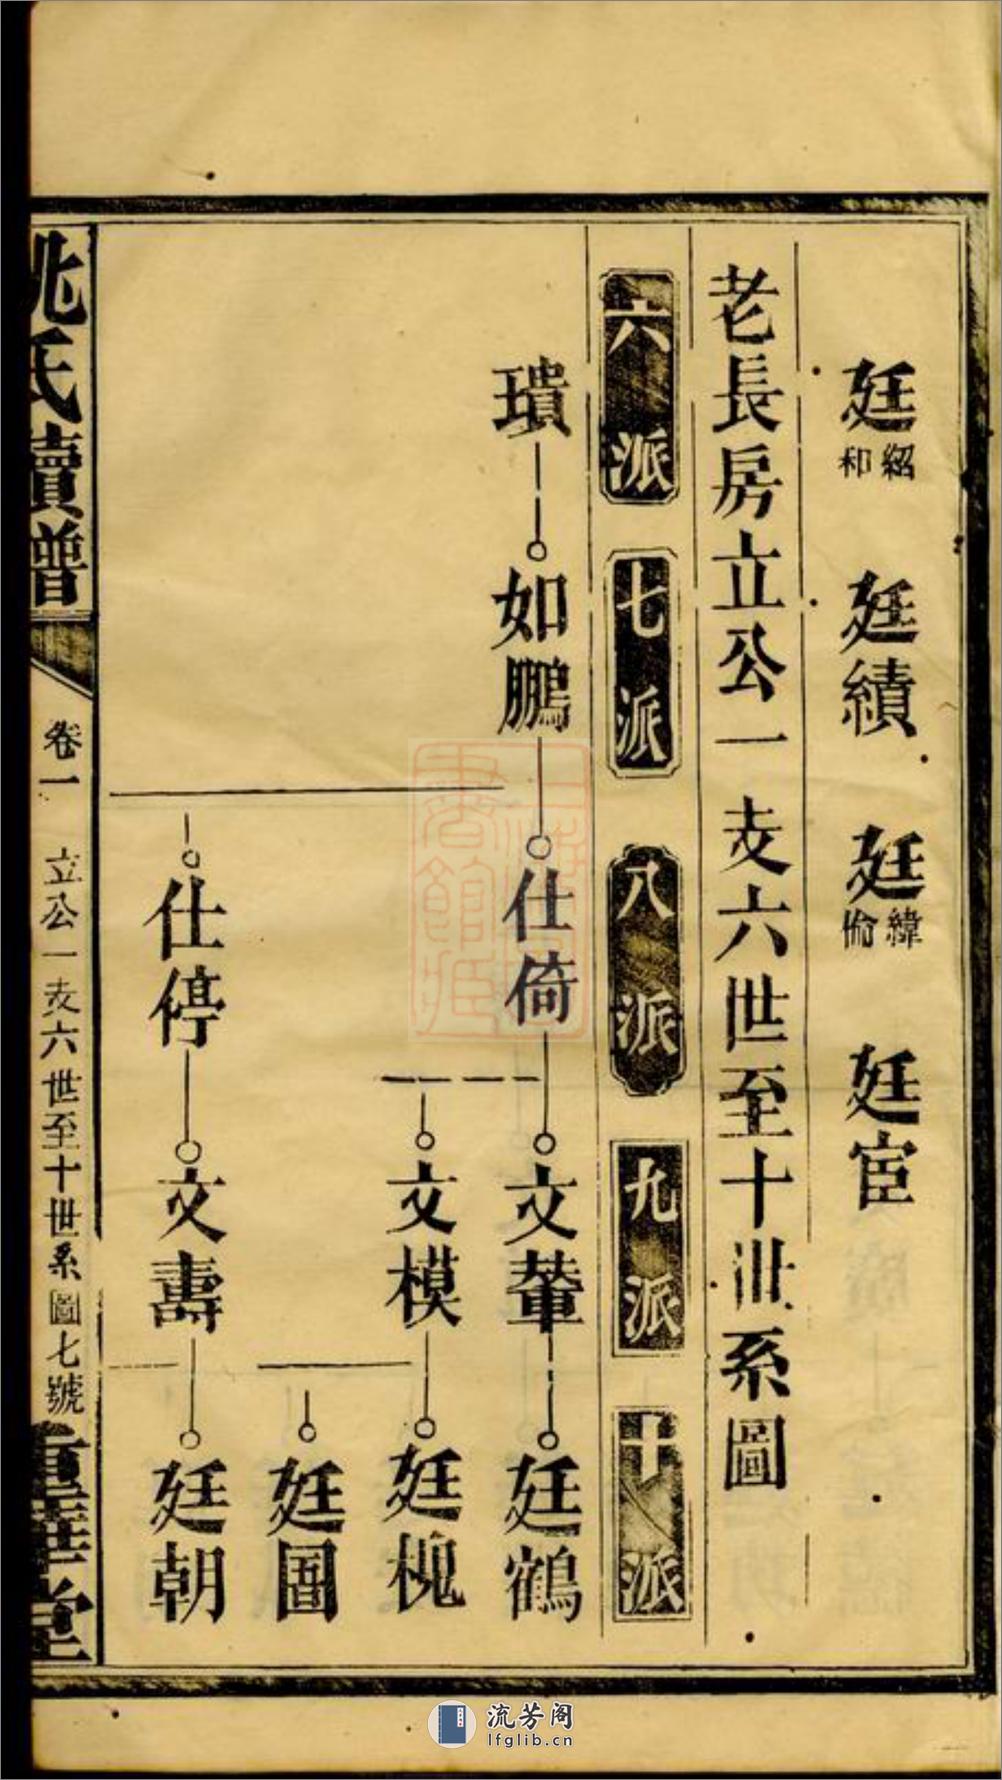 廷紹和　廷績　廷緯倫　廷宦
老長房立公一支六世至十世系圖
六派　七派　八派　九派　十派
璝　如鵬　仕倚　文輦　廷鶴
文模　廷槐
廷圖
仕停　文壽　廷朝
姚氏續譜　卷一　立公一支六世至十世系圖七號　重華堂
流芳阁
lfglib.cn